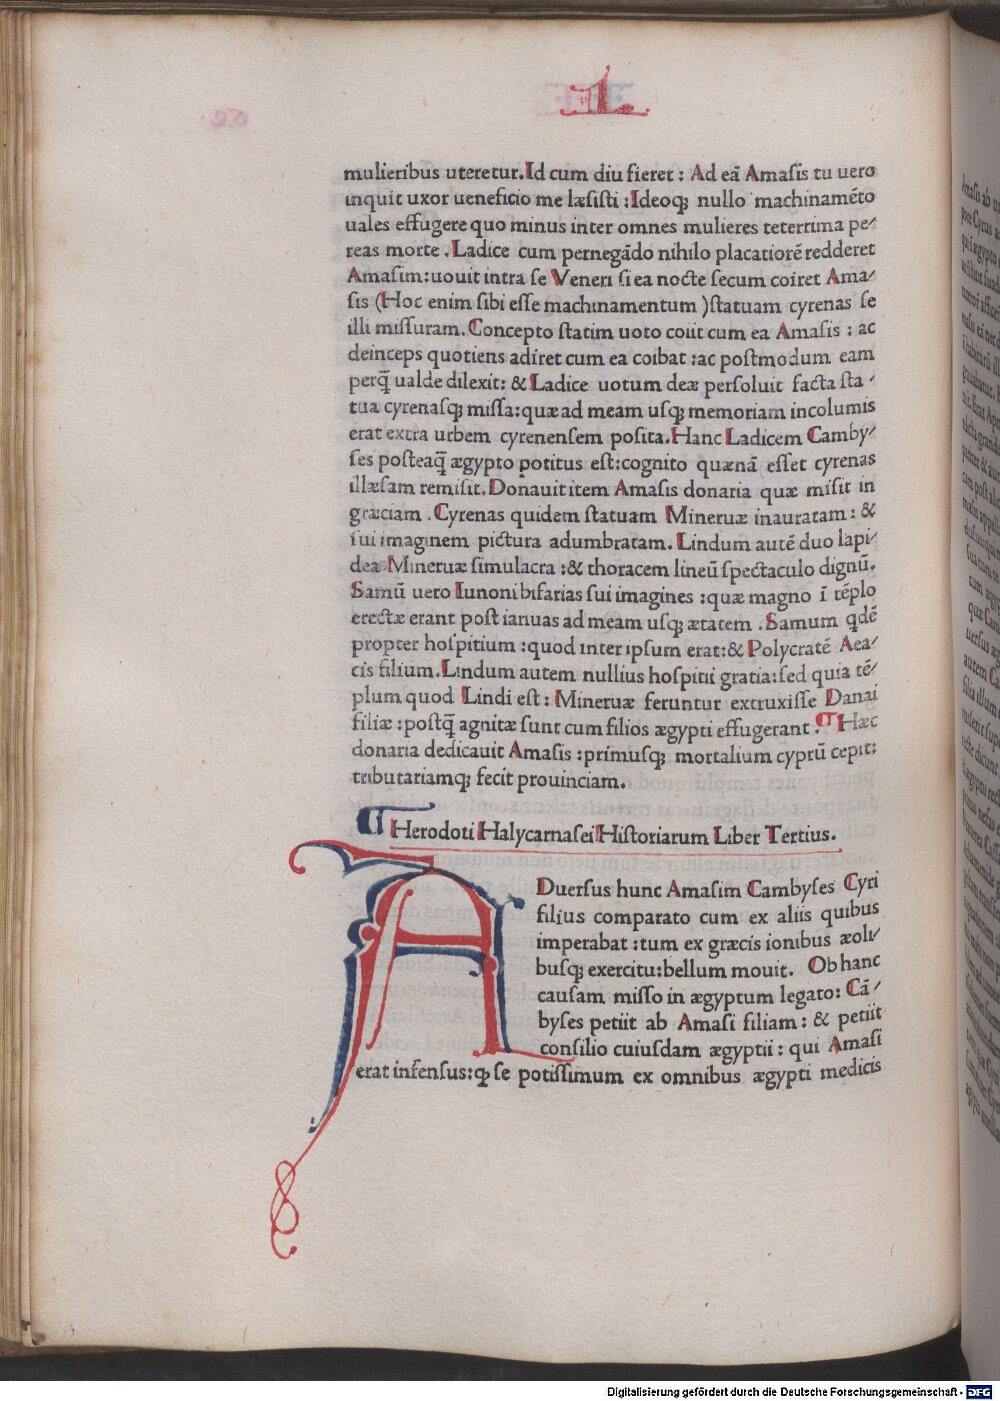 L
mulieribus uteretur. Id cum diu fieret : Ad eā Amasis tu uero
inquit uxor ueneficio me læsisti : Ideoq; nullo machinamēto
uales effugere quo minus inter omnes mulieres teterrima pe⸗
reas morte . Ladice cum pernegādo nihilo placatiorē redderet
Amasim: uouit intra se Veneri si ea nocte secum coiret Ama⸗
sis (Hoc enim sibi esse machinamentum )statuam cyrenas se
illi missuram. Concepto statim uoto coiit cum ea Amasis : ac
deinceps quotiens adiret cum ea coibat :ac postmodum eam
perq̄ ualde dilexit: & Ladice uotum deæ persoluit facta sta⸗
tua cyrenasq; missa: quæ ad meam usq; memoriam incolumis
erat extra urbem cyrenensem posita. Hanc Ladicem Camby⸗
ses posteaq̄ ægypto potitus est: cognito quænā esset cyrenas
illæsam remisit. Donauit item Amasis donaria quæ misit in
græciam . Cyrenas quidem statuam Mineruæ inauratam : &
sui imaginem pictura adumbratam. Lindum autē duo lapi⸗
dea Mineruæ simulacra : & thoracem lineū spectaculo dignū.
Samū uero Iunoni bifarias sui imagines : quæ magno ī tēplo
erectæ erant post ianuas ad meam usq; ætatem . Samum qdē
propter hospitium : quod inter ipsum erat: & Polycratē Aea⸗
cis filium. Lindum autem nullius hospitii gratia: sed quia tē⸗
plum quod Lindi est : Mineruæ feruntur extruxisse Danai
filiæ : postq̄ agnitæ sunt cum filios ægypti effugerant . ¶ Hæc
donaria dedicauit Amasis : primusq; mortalium cyprū cepit:
tributariamq; fecit prouinciam.
¶ Herodoti Halycarnasei Historiarum Liber Tertius.
ADuersus hunc Amasim Cambyses Cyri
filius comparato cum ex aliis quibus
imperabat : tum ex græcis ionibus æoli⸗
busq; exercitu: bellum mouit. Ob hanc
causam misso in ægyptum legato: Cā⸗
byses petiit ab Amasi filiam : & petiit
consilio cuiusdam ægyptii : qui Amasi
erat infensus: ꝙ se potissimum ex omnibus ægypti medicis
Digitalisierung gefördert durch die Deutsche Forschungsgemeinschaft - DFG